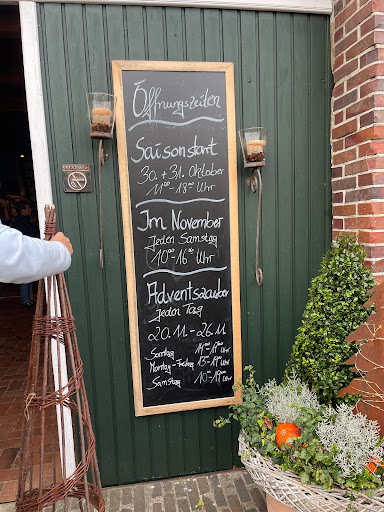 Öffnungszeiten
Saisonstart
30. + 31. Oktober
11⁰⁰ - 18⁰⁰ Uhr
Im November
Jeden Samstag
10⁰⁰ - 16⁰⁰ Uhr
Adventszauber
Jeden Tag
20.11 - 26.11
Sonntag 14⁰⁰ - 17⁰⁰ Uhr
Montag - Freitag 13 - 19⁰⁰ Uhr
Samstag 10 - 19⁰⁰ Uhr